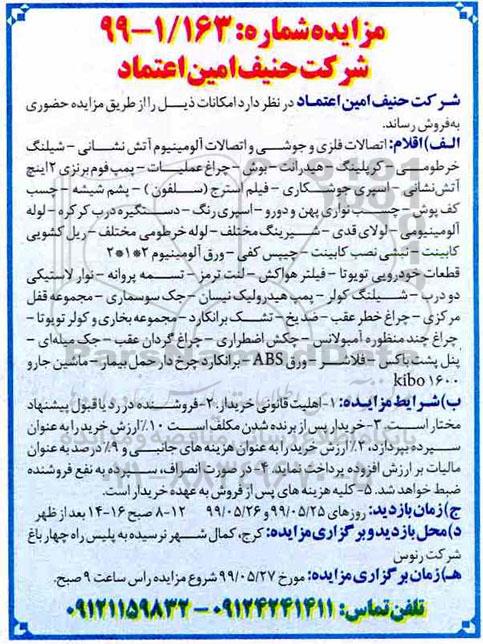 مزایده شماره: ۱/۱۶۳-۹۹
شرکت حنیف امین اعتماد
شرکت حنیف امین اعتماد در نظر دارد امکانات ذیل را از طریق مزایده حضوری
به‌فروش رساند.
الف) اقلام: اتصالات فلزی و جوشی و اتصالات آلومینیوم آتش نشانی - شیلنگ
خرطومی - کرپلینگ - هیدرانت - بوش - چراغ عملیات - پمپ فوم برنزی ۲ اینچ
آتش نشانی - اسپری جوشکاری - فیلم استرج (سلفون) - پشم شیشه - چسب
کف پوش - چسب نواری پهن و دورو - اسپری رنگ - دستگیره درب کرکره - لوله
آلومینیومی - لولای قدی - شیرینگ مختلف - لوله خرطومی مختلف - ریل کشویی
کابینت - نبشی نصب کابینت - چیپس کفی - ورق آلومینیوم ۲*۱*۲
قطعات خودرویی تویوتا - فیلتر هواکش - لنت ترمز - تسمه پروانه - نوار لاستیکی
دو درب - شیلنگ کولر - پمپ هیدرولیک نیسان - جک سوسماری - مجموعه قفل
مرکزی - چراغ خطر عقب - ضدیخ - تشک برانکارد - مجموعه بخاری و کولر تویوتا -
چراغ چند منظوره آمبولانس - چکش اضطراری - چراغ گردان عقب - جک میله‌ای -
پنل پشت باکس - فلاشر - ورق ABS - برانکارد چرخ دار حمل بیمار - ماشین جارو
kibo ۱۶۰۰
ب) شرایط مزایده: ۱- اهلیت قانونی خریدار. ۲- فروشنده در رد یا قبول پیشنهاد
مختار است. ۳- خریدار پس از برنده شدن مکلف است ۱۰٪ ارزش خرید را به عنوان
سپرده بپردازد، ۳٪ ارزش خرید را به عنوان هزینه های جانبی و ۹٪ درصد به عنوان
مالیات بر ارزش افزوده پرداخت نماید. ۴- در صورت انصراف، سپرده به نفع فروشنده
ضبط خواهد شد. ۵- کلیه هزینه های پس از فروش به عهده خریدار است.
ج) زمان بازدید: روزهای ۹۹/۰۵/۲۵ و ۹۹/۰۵/۲۶ ۸-۱۲ صبح ۱۶-۱۴ بعد از ظهر
د) محل بازدید و برگزاری مزایده: کرج، کمال شهر نرسیده به پلیس راه چهارباغ
شرکت رنوس
هـ) زمان برگزاری مزایده: مورخ ۹۹/۰۵/۲۷ شروع مزایده راس ساعت ۹ صبح.
تلفن تماس: ۰۹۱۲۴۲۴۱۴۱۱ - ۰۹۱۲۱۱۵۹۸۳۲